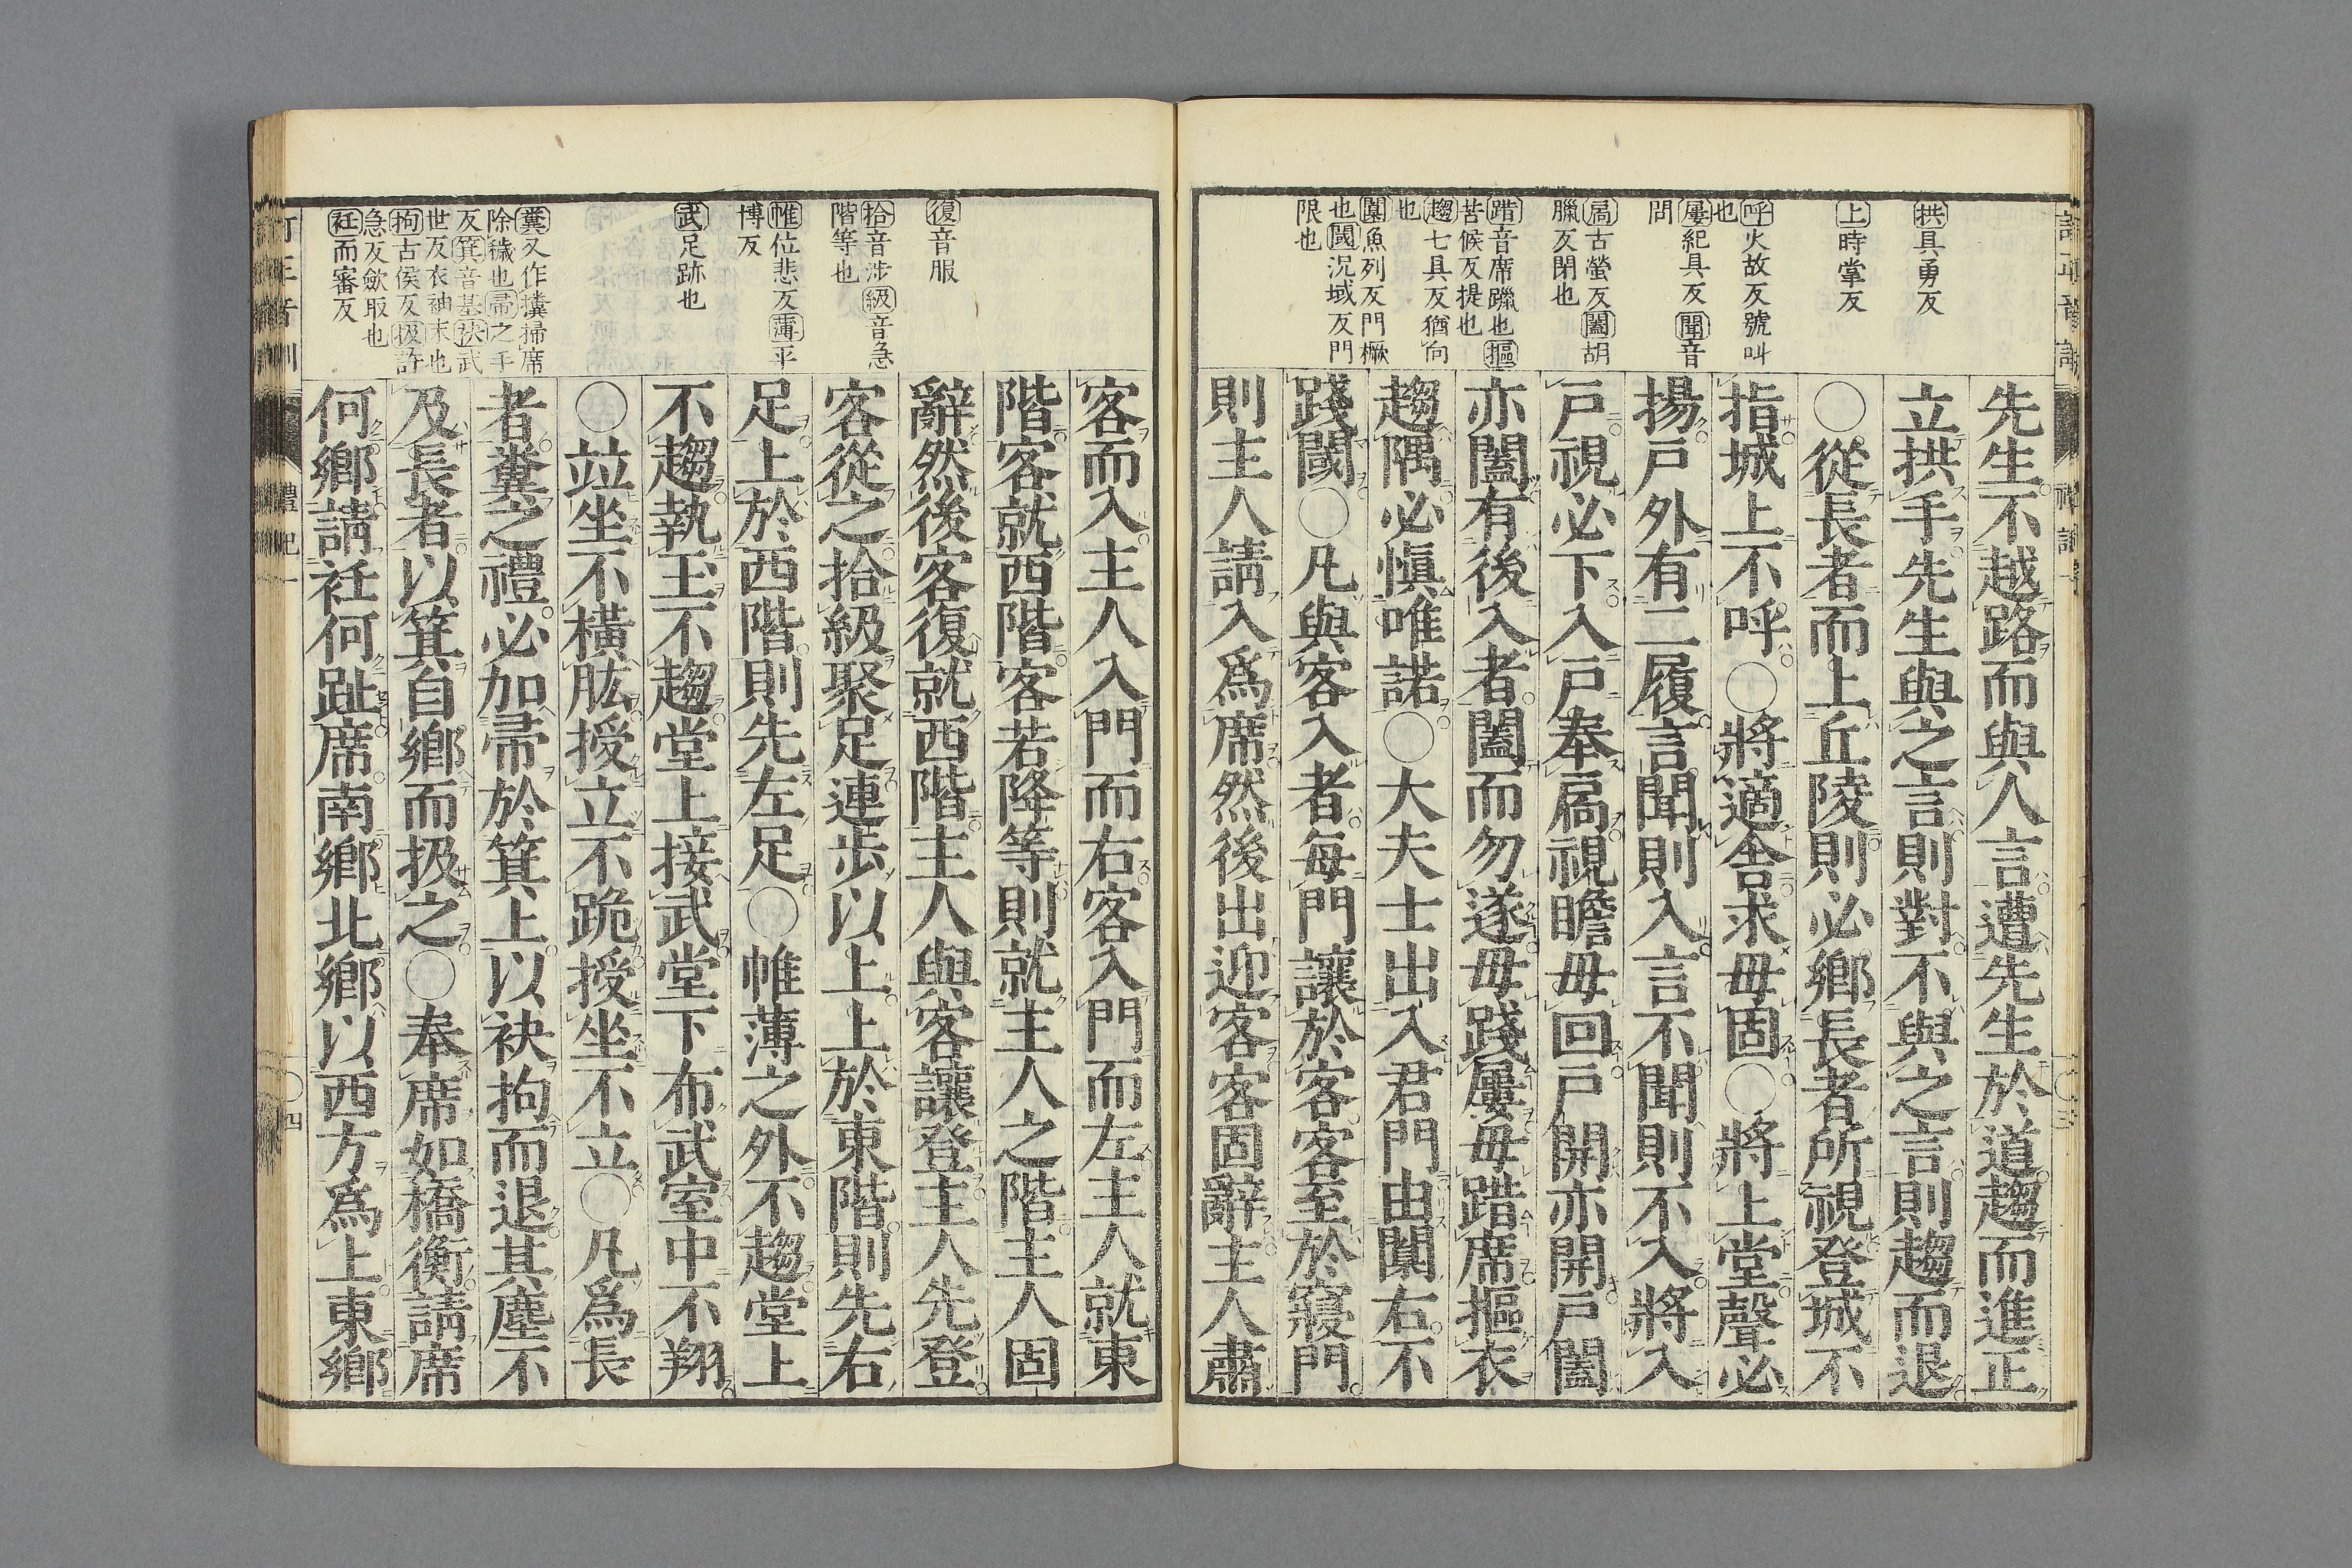 先生不越路而與人言遭先生於道趨而進正
立拱手先生與之言則對不與之言則趨而退
○從長者而上丘陵則必鄉長者所視登城不
指城上不呼○將適舍求毋固○將上堂聲必
揚戶外有二屨言聞則入言不聞則不入將入
戶視必下入戶奉扃視瞻毋回戶開亦開戶闔
亦闔有後入者闔而勿遂毋踐屨毋踖席摳衣
趨隅必愼唯諾○大夫士出入君門由闑右不
踐閾○凡與客入者每門讓於客客至於寢門
則主人請入爲席然後出迎客客固辭主人肅
拱具勇反
上時掌反
呼火故反號叫
也
屨紀具反聞音
問
扃古螢反闔胡
臘反閉也
踖音席躐也摳
苦候反提也
趨七具反猶向
也
闑魚列反門橛
也閾況域反門
限也
客而入主人入門而右客入門而左主人就東
階客就西階客若降等則就主人之階主人固
辭然後客復就西階主人與客讓登主人先登
客從之拾級聚足連步以上上於東階則先右
足上於西階則先左足○帷薄之外不趨堂上
不趨執玉不趨堂上接武堂下布武室中不翔
○竝坐不橫肱授立不跪授坐不立○凡爲長
者糞之禮必加帚於箕上以袂拘而退其塵不
及長者以箕自鄉而扱之○奉席如橋衡請席
何鄉請衽何趾席南鄉北鄉以西方爲上東鄉
復音服
拾音涉級音急
階等也
帷位悲反薄平
博反
武足跡也
糞又作攩掃席
除穢也帚之手
反箕音基袂武
世反衣袖末也
拘古侯反扱許
急反歛取也
衽而審反
禮記一
四